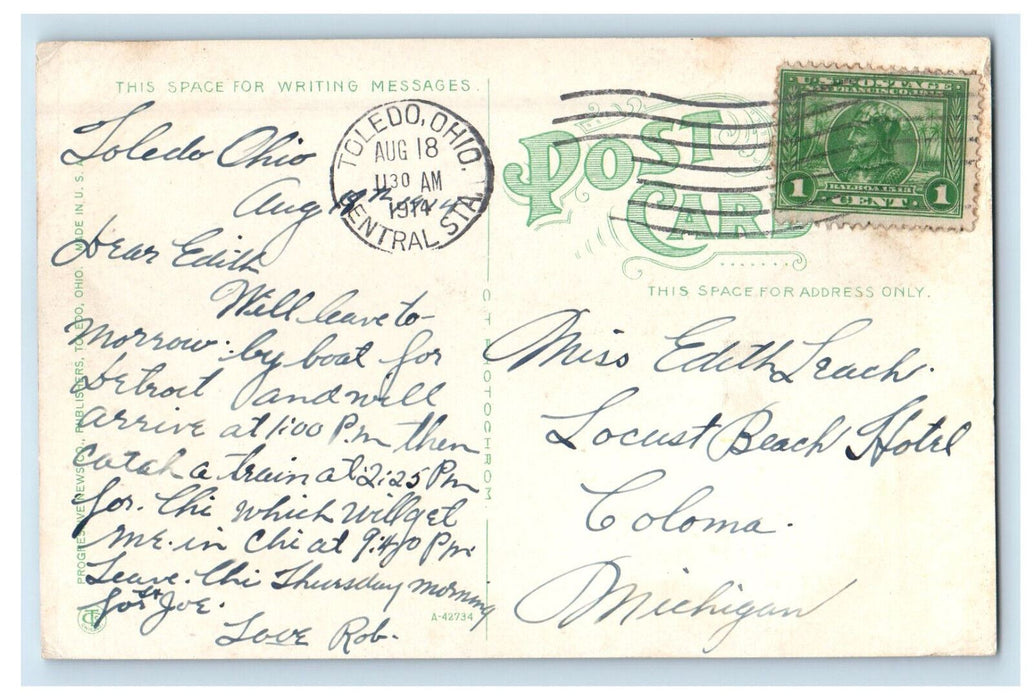 THIS SPACE FOR WRITING MESSAGES.
Toledo Ohio
Aug
Dear Edith
Will leave to-
morrow. by boat for
Detroit and will
arrive at 1:00 P.m then
catch a train at 2:25 Pm
for. Chi which will get
me. in Chi at 9:40 Pm.
Leave. Chi Thursday morning
for St Joe.
Love Rob.
PROGRESSIVE NEWS CO., PUBLISHERS, TOLEDO, OHIO. MADE IN U. S. A.
A-42734
TOLEDO, OHIO.
AUG 18
1130 AM
1914
CENTRAL STA.
POST
CARD
U.S. POSTAGE
SAN FRANCISCO, 1915
BALBOA, 1513
1 CENT 1
THIS SPACE FOR ADDRESS ONLY.
C.T. PHOTOCHROM
Miss Edith Leach.
Locust Beach Hotel
Coloma.
Michigan